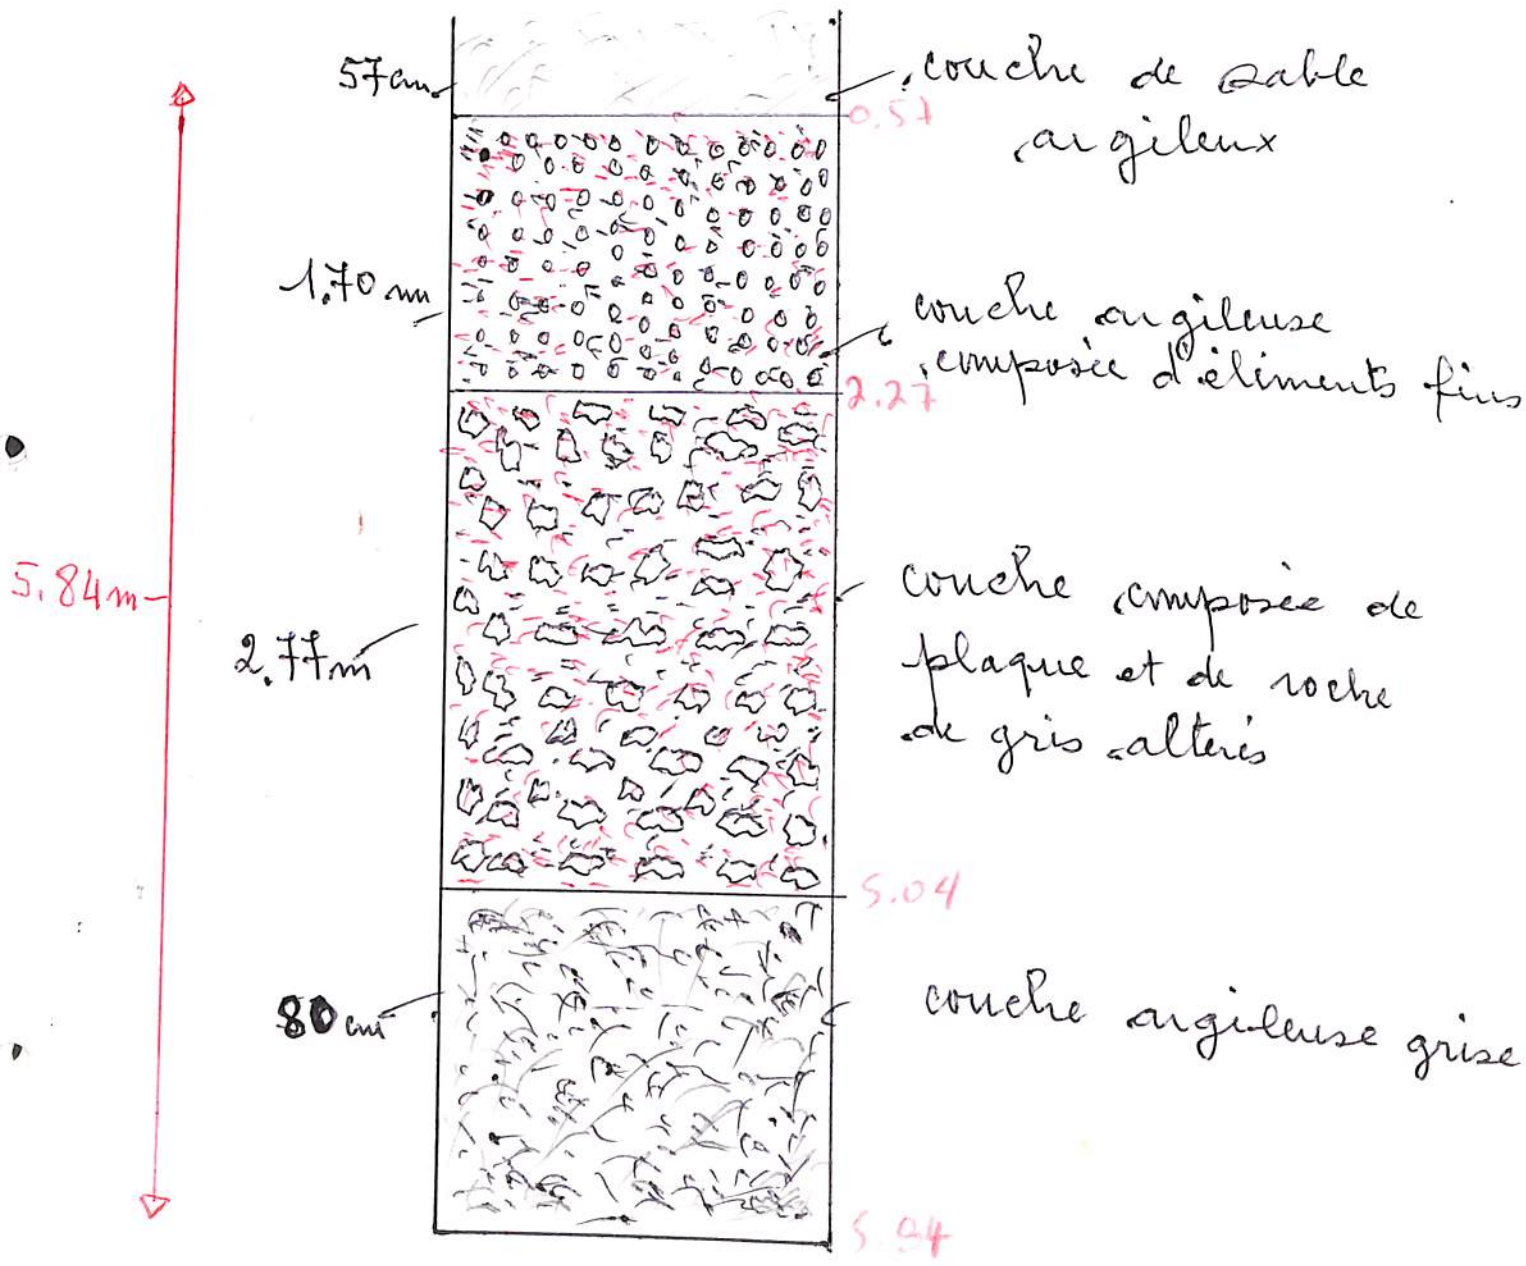 57cm
couche de sable
argileux
0.57
1.70 m
couche argileuse
composée d'éléments fins
2.27
5.84m
2.77m
couche composée de
plaque et de roche
de gris altérés
5.04
80 cm
couche argileuse grise
5.84